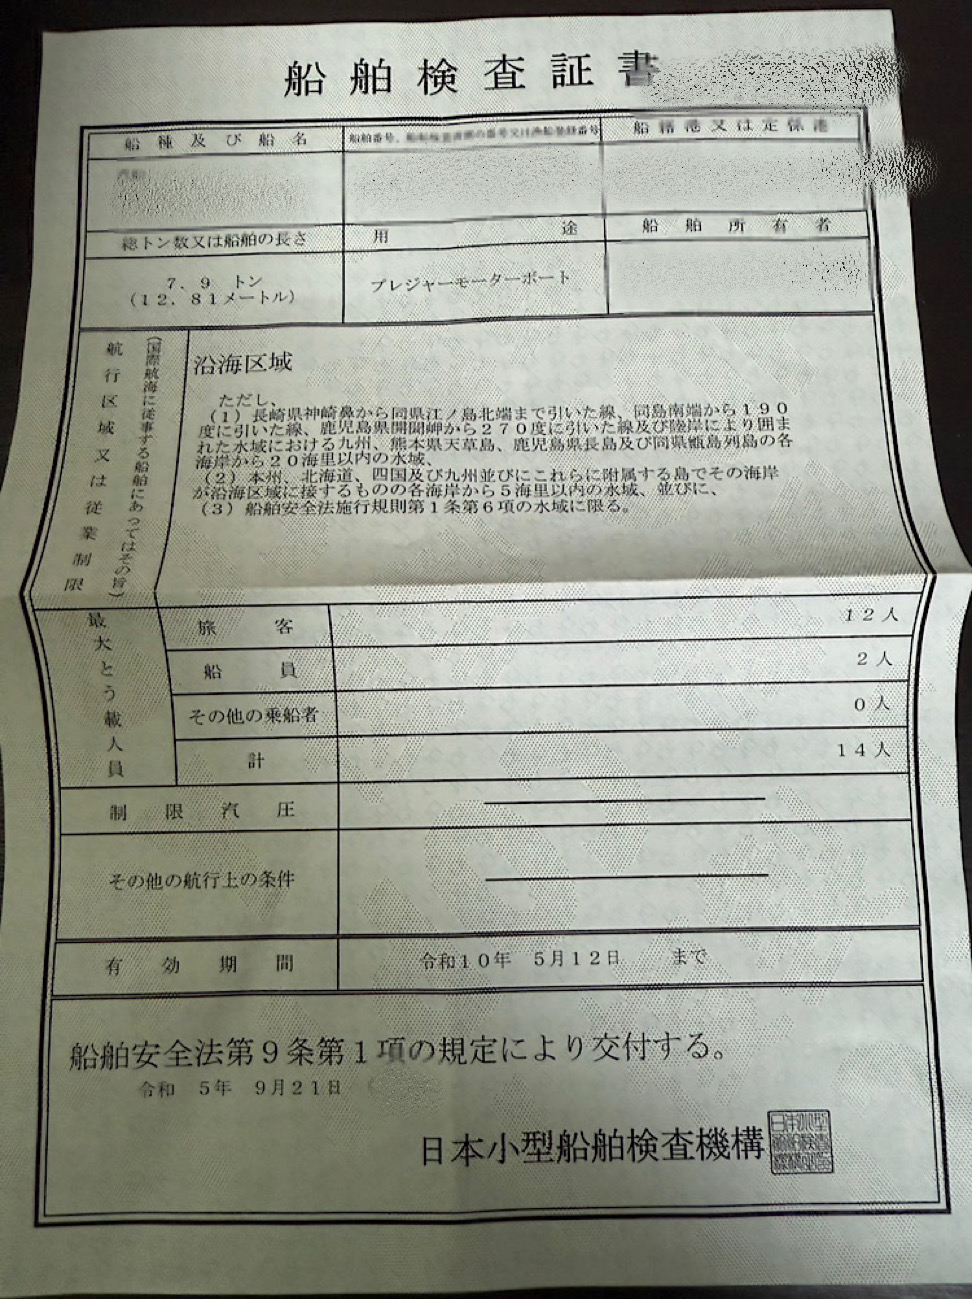 船舶検査証書
船種及び船名
船舶番号、船舶検査済票の番号又は漁船登録番号
船籍港又は定係港
汽船
総トン数又は船舶の長さ
用途
船舶所有者
7.9 トン
(12.81メートル)
プレジャーモーターボート
航行区域又は従業制限
(国際航海に従事する船舶にあってはその旨)
沿海区域
ただし、
(1)長崎県神崎鼻から同県江ノ島北端まで引いた線、同島南端から190
度に引いた線、鹿児島県開聞岬から270度に引いた線及び陸岸により囲ま
れた水域における九州、熊本県天草島、鹿児島県長島及び同県甑島列島の各
海岸から20海里以内の水域、
(2)本州、北海道、四国及び九州並びにこれらに附属する島でその海岸
が沿海区域に接するものの各海岸から5海里以内の水域、並びに、
(3)船舶安全法施行規則第1条第6項の水域に限る。
最大とう載人員
旅客
12人
船員
2人
その他の乗船者
0人
計
14人
制限汽圧
その他の航行上の条件
有効期間
令和10年 5月12日 まで
船舶安全法第9条第1項の規定により交付する。
令和 5年 9月21日
日本小型船舶検査機構